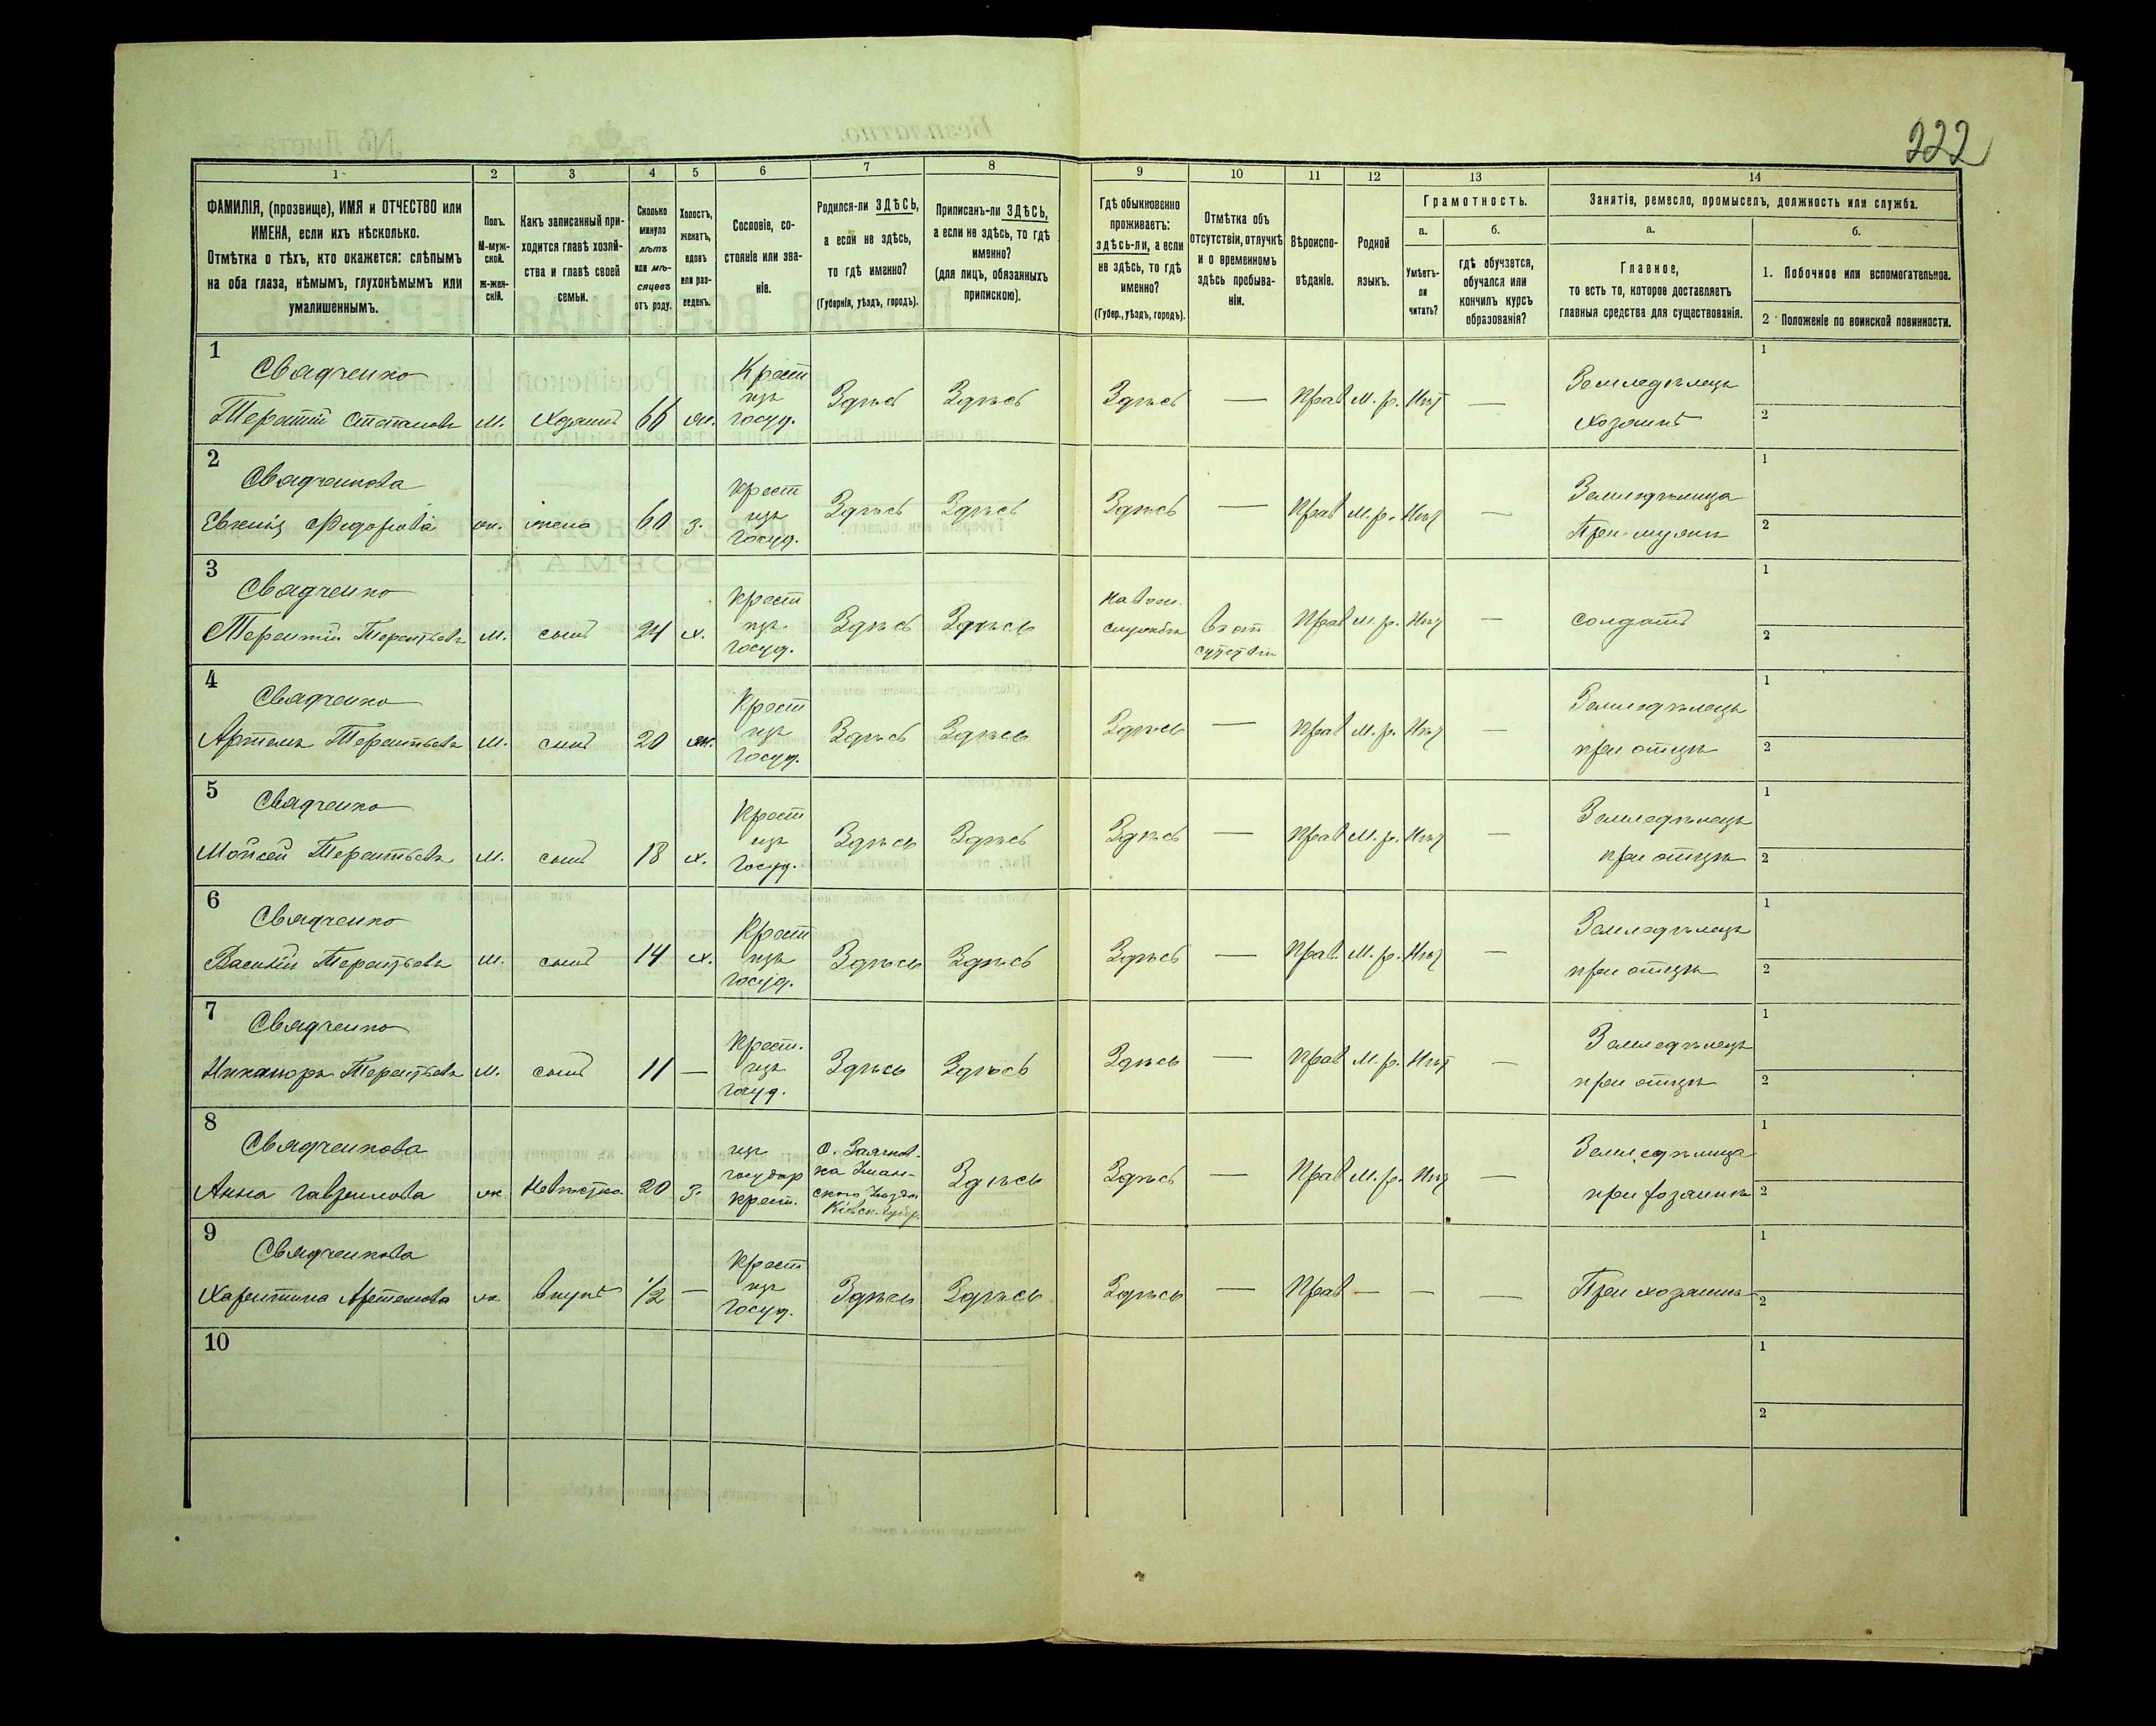 222
1 2 3 4 5 6 7 8 9 10 11 12 13 14
ФАМИЛІЯ, (прозвище), ИМЯ и ОТЧЕСТВО или ИМЕНА, если ихъ нѣсколько.
Отмѣтка о тѣхъ, кто окажется: слѣпымъ на оба глаза, нѣмымъ, глухонѣмымъ или умалишеннымъ.
Полъ. М-мужской. Ж-женскій.
Какъ записанный приходится главѣ хозяйства и главѣ своей семьи.
Сколько минуло лѣтъ или мѣсяцевъ отъ роду.
Холостъ, женатъ, вдовъ или разведенъ.
Сословіе, состояніе или званіе.
Родился-ли ЗДѢСЬ, а если не здѣсь, то гдѣ именно?
(Губернія, уѣздъ, городъ).
Приписанъ-ли ЗДѢСЬ, а если не здѣсь, то гдѣ именно?
(для лицъ, обязанныхъ припискою).
Гдѣ обыкновенно проживаетъ: здѣсь-ли, а если не здѣсь, то гдѣ именно?
(Губер., уѣздъ, городъ).
Отмѣтка объ отсутствіи, отлучкѣ и о временномъ здѣсь пребываніи.
Вѣроисповѣданіе.
Родной языкъ.
Грамотность.
а. Умѣетъ-ли читать?
б. гдѣ обучается, обучался или кончилъ курсъ образованія?
Занятія, ремесло, промыселъ, должность или служба.
а. Главное, то есть то, которое доставляетъ главныя средства для существованія.
б.
1. Побочное или вспомогательное.
2 Положеніе по воинской повинности.
1 Свядченко
Терентій Степановъ м. Хозяинъ 66 ж. Крест изъ госуд. Здѣсь Здѣсь Здѣсь — Прав М. р. Нѣт — Земледѣлецъ хозяинъ 1 2
2 Свядченкова
Евгенія Федорова ж. жена 60 з. Крест изъ госуд. Здѣсь Здѣсь Здѣсь — Прав М. р. Нѣт — Земледѣлица При мужѣ 1 2
3 Свядченко
Терентій Терентьевъ м. сынъ 24 х. Крест изъ госуд. Здѣсь Здѣсь На воен. службѣ в от сутствіи Прав М. р. Нѣт — солдатъ 1 2
4 Свядченко
Артемъ Терентьевъ м. сынъ 20 ж. Крест изъ госуд. Здѣсь Здѣсь Здѣсь — Прав М. р. Нѣт — Земледѣлецъ при отцѣ 1 2
5 Свядченко
Мойсей Терентьевъ м. сынъ 18 х. Крест изъ госуд. Здѣсь Здѣсь Здѣсь — Прав М. р. Нѣт — Земледѣлецъ при отцѣ 1 2
6 Свядченко
Василій Терентьевъ м. сынъ 14 х. Крест изъ госуд. Здѣсь Здѣсь Здѣсь — Прав. М. р. Нѣт — Земледѣлецъ при отцѣ 1 2
7 Свядченко
Никаноръ Терентьевъ м. сынъ 11 — Крест. изъ госуд. Здѣсь Здѣсь Здѣсь — Прав М. р. Нѣт — Земледѣлецъ при отцѣ 1 2
8 Свядченкова
Анна Гаврилова ж Невѣстка 20 з. изъ государ крест. Уман- ского Уѣзда Кіевск. Губер. Здѣсь Здѣсь — Прав М. р. Нѣт — Земледѣлица при хозяинѣ 1 2
9 Свядченкова
Харитина Артемова ж. внука 1/2 — Крест изъ госуд. Здѣсь Здѣсь Здѣсь — Прав — — — При хозяинѣ 1 2
10 1 2